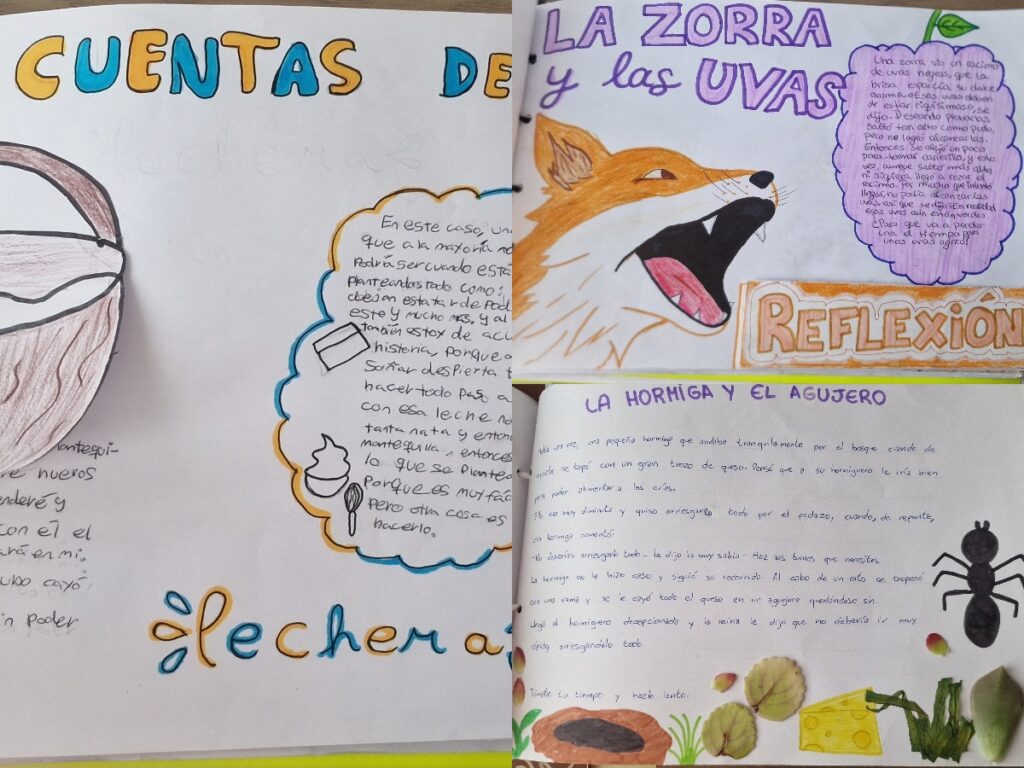 CUENTAS DE
En este caso, un
que a la mayoría
Podría ser cuando está
Planteándoos todo como:
esto y mucho más. y al
también estoy de acu
historia, porque
Soñar despierta
hacer todo paso a
con esa leche no
tanta nata y enton
mantequilla, entonces
lo que se plantea
Porque es muy fác
Pero otra cosa es
hacerlo.
antequi-
re huevos
enderé y
con él el
ará en mi.
cubo cayó
in poder
lechera
LA ZORRA
y las UVAS
Una zorra vio un racimo
de uvas negras, que la
brisa esparcía su dulce
aroma. Esas uvas deben
de estar riquísimas, se
dijo. Deseando probarlas,
saltó tan alto como pudo,
pero no logró alcanzarlas.
Entonces se alejó un poco
para tomar carrerilla, y esta
vez, aunque saltó más alto,
ni siquiera llegó a rozar el
racimo. Por mucho que intentó
llegar, no podía alcanzar las
uvas, así que se dijo: En realidad
esas uvas aún están verdes
Claro que voy a perder
el tiempo por
unas uvas agrias.
REFLEXIÓN
LA HORMIGA Y EL AGUJERO
una vez, una pequeña hormiga que andaba tranquilamente por el bosque cuando de
repente se topó con un gran trozo de queso. Pensó que a su hormiguero le iría bien
para poder alimentar a las crías.
era muy diminuta y quiso arriesgarlo todo por el pedazo, cuando, de repente,
una hormiga comentó:
-No deberías arriesgarlo todo- le dijo la muy sabia- Haz los turnos que necesites.
La hormiga no le hizo caso y siguió su recorrido. Al cabo de un rato se tropezó
con una rama y se le cayó todo el queso en un agujero quedándose sin.
Llegó al hormiguero decepcionada y la reina le dijo que no debería ir muy
arriesgándolo todo.
Tómate tu tiempo y hazlo lento.